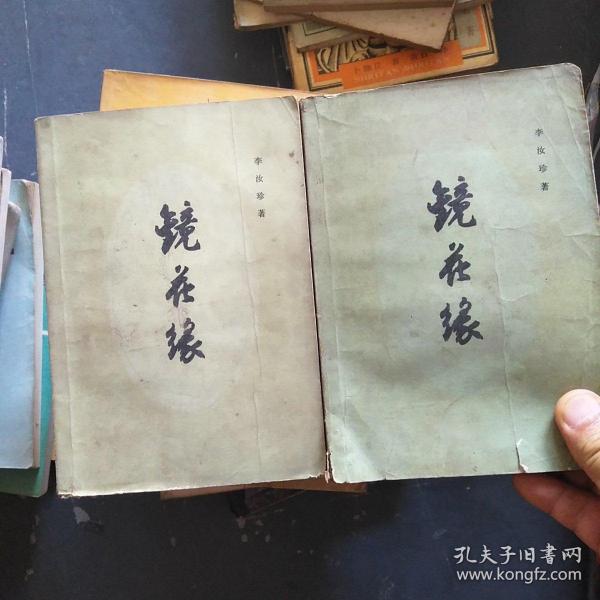 李汝珍著
鏡花缘
李汝珍著
鏡花缘
著
孔夫子旧書网
www.kongfz.com